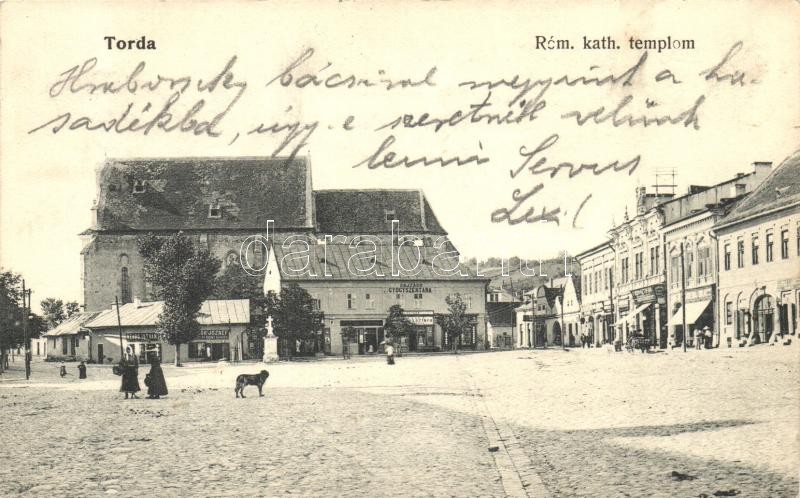 Torda
Róm. kath. templom
Hrabovszky bácsival megyünk a ha-
sadékba, úgy-e szeretnél velünk
lenni Servus
darabanth.com
GYÓGYSZERTÁRA